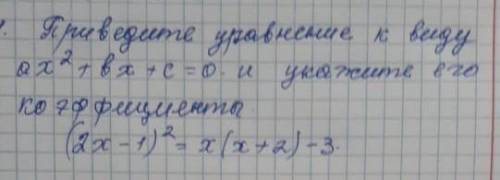 Приведите уравнение к виду
ах² + вх + с = 0. и укажите его
коэффициента.
(2х - 1)² = х(х + 2) - 3.